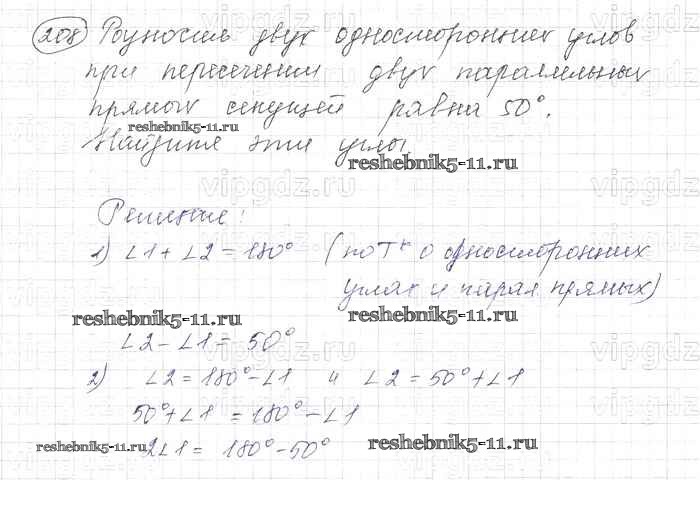 208 Разность двух односторонних углов
при пересечении двух параллельных
прямых секущей равна 50°.
reshebnik5-11.ru
Найдите эти углы.
reshebnik5-11.ru
Решение:
1) ∠1 + ∠2 = 180° (по Т о односторонних
углах и парал прямых)
reshebnik5-11.ru
reshebnik5-11.ru
∠2 - ∠1 = 50°
2) ∠2 = 180° - ∠1 и ∠2 = 50° + ∠1
50° + ∠1 = 180° - ∠1
reshebnik5-11.ru
2∠1 = 180° - 50°
reshebnik5-11.ru
vipgdz.ru